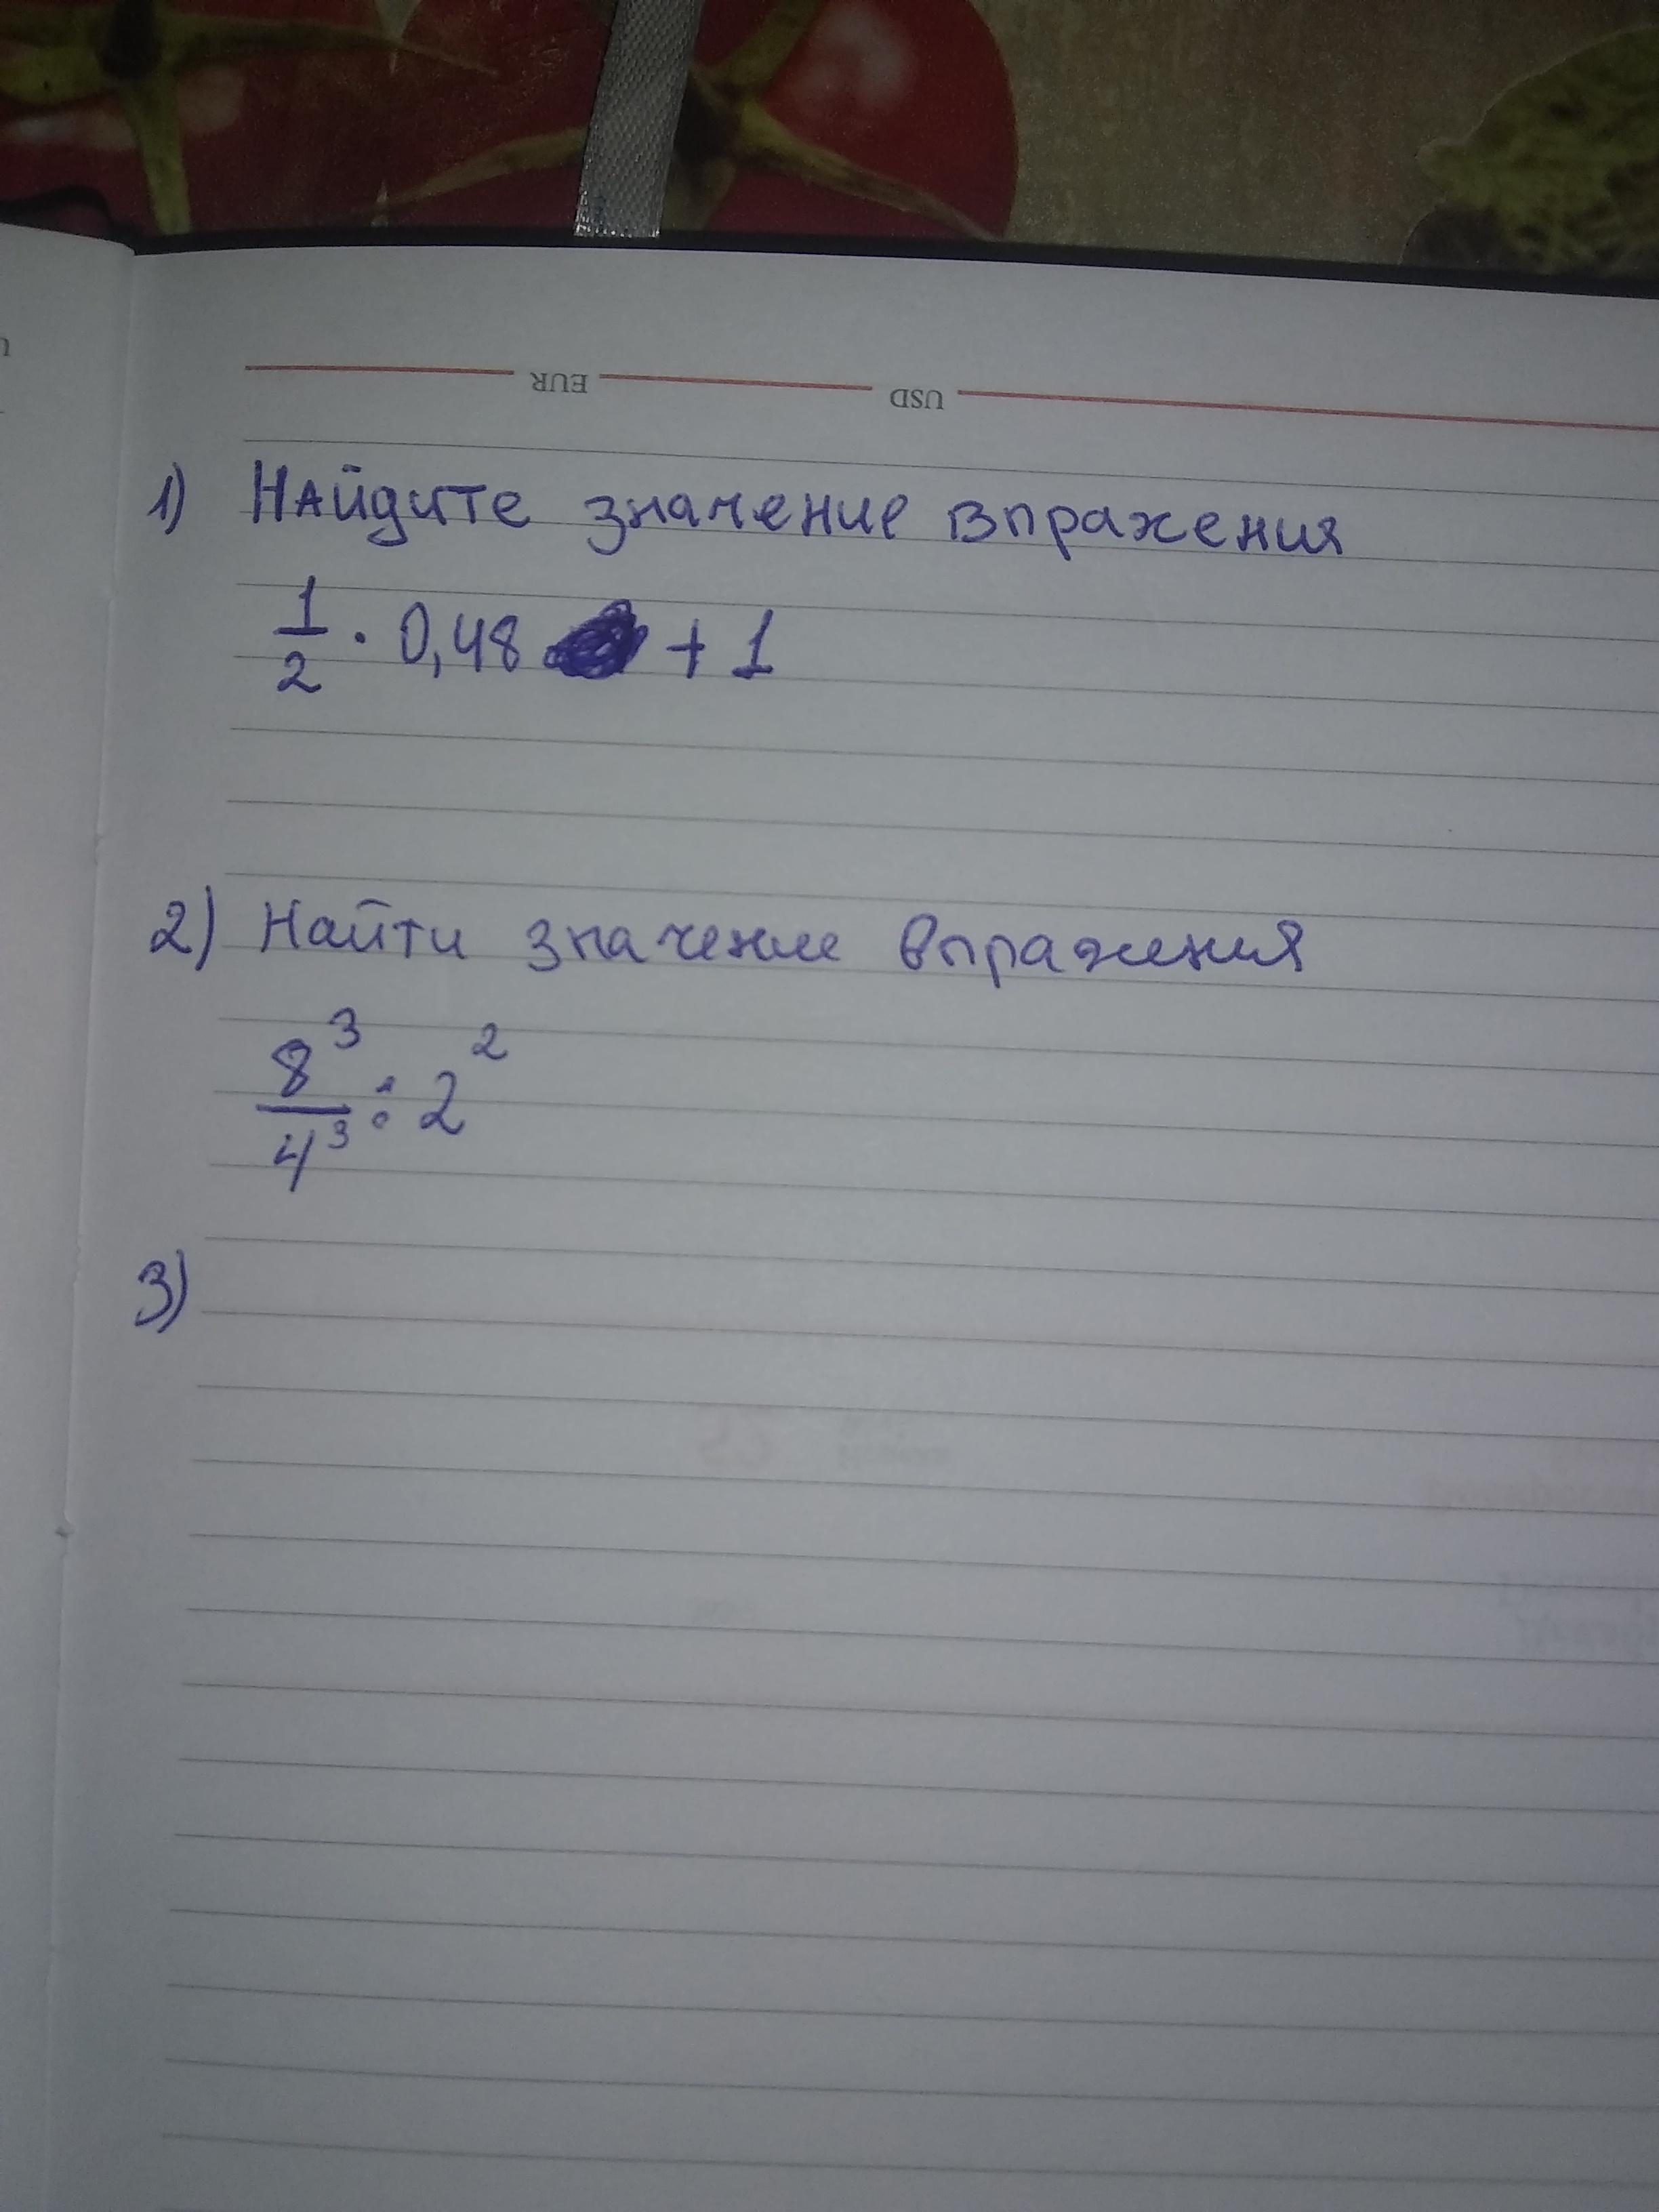 EUR USD
1) Найдите значение впражения
1/2 · 0,48 + 1
2) Найти значение впражения
8³/4³ : 2²
3)